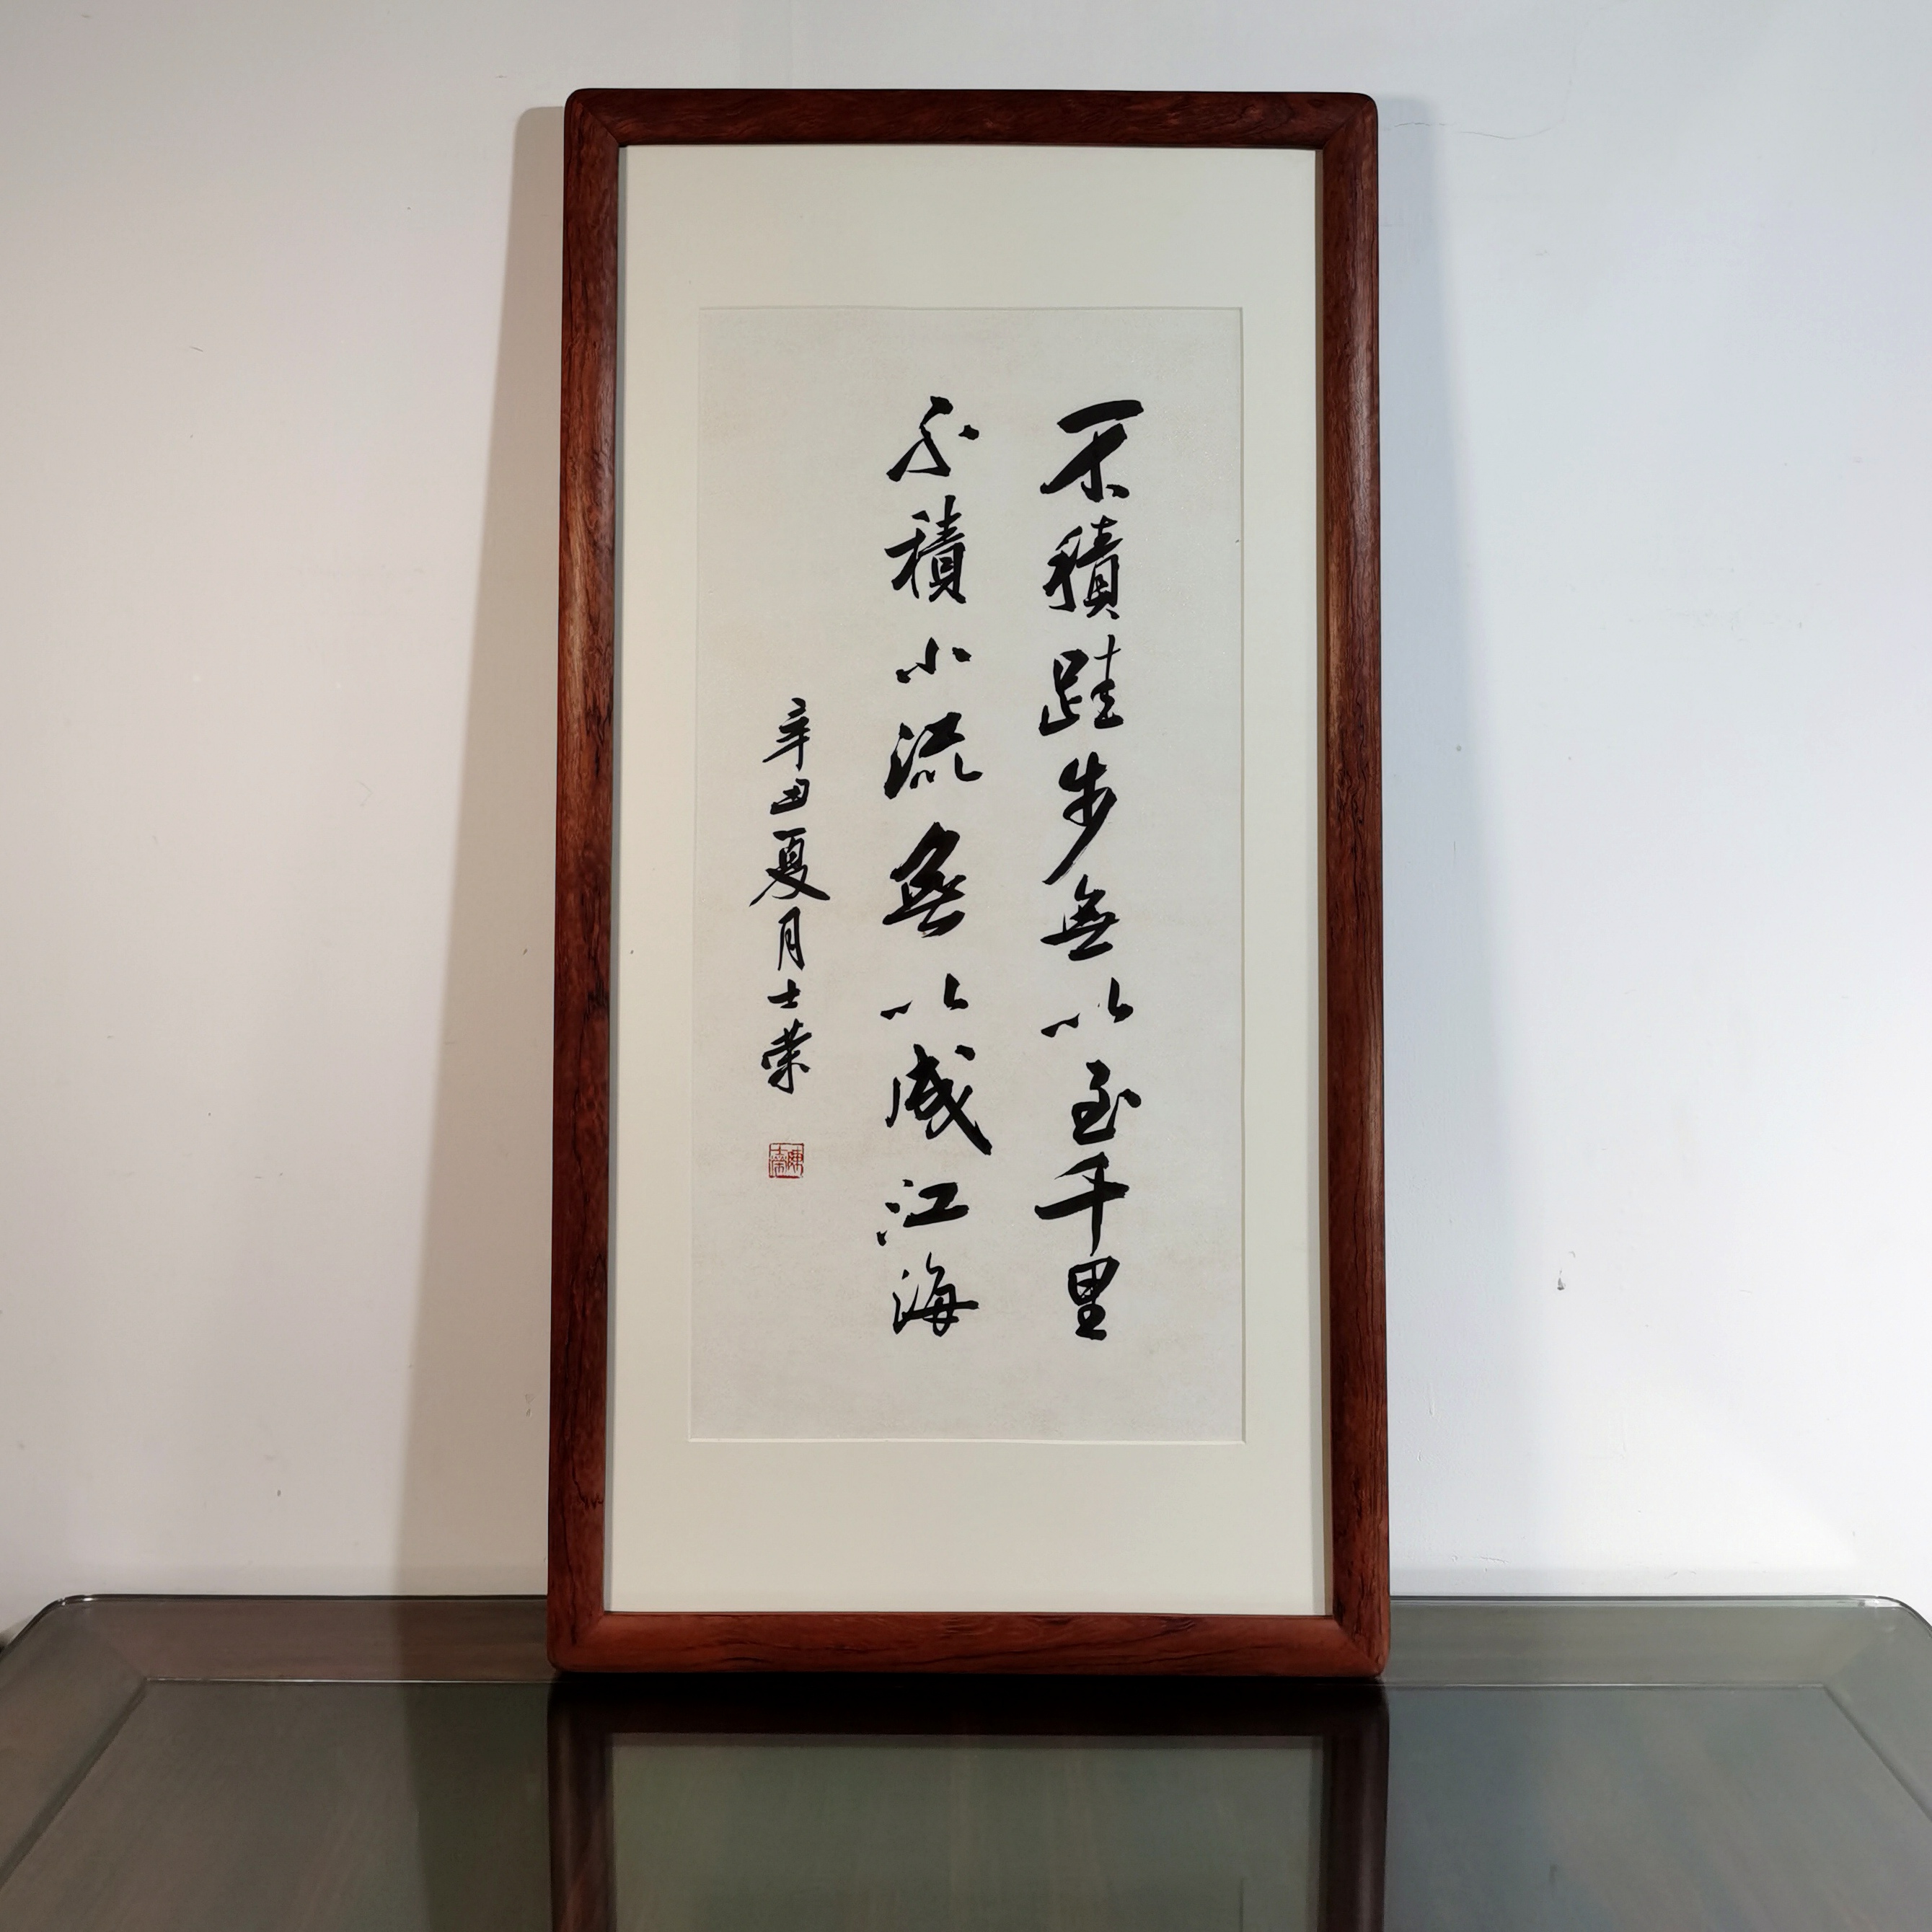 不積跬步無以至千里
不積小流無以成江海
辛丑夏月士荣
陳士榮